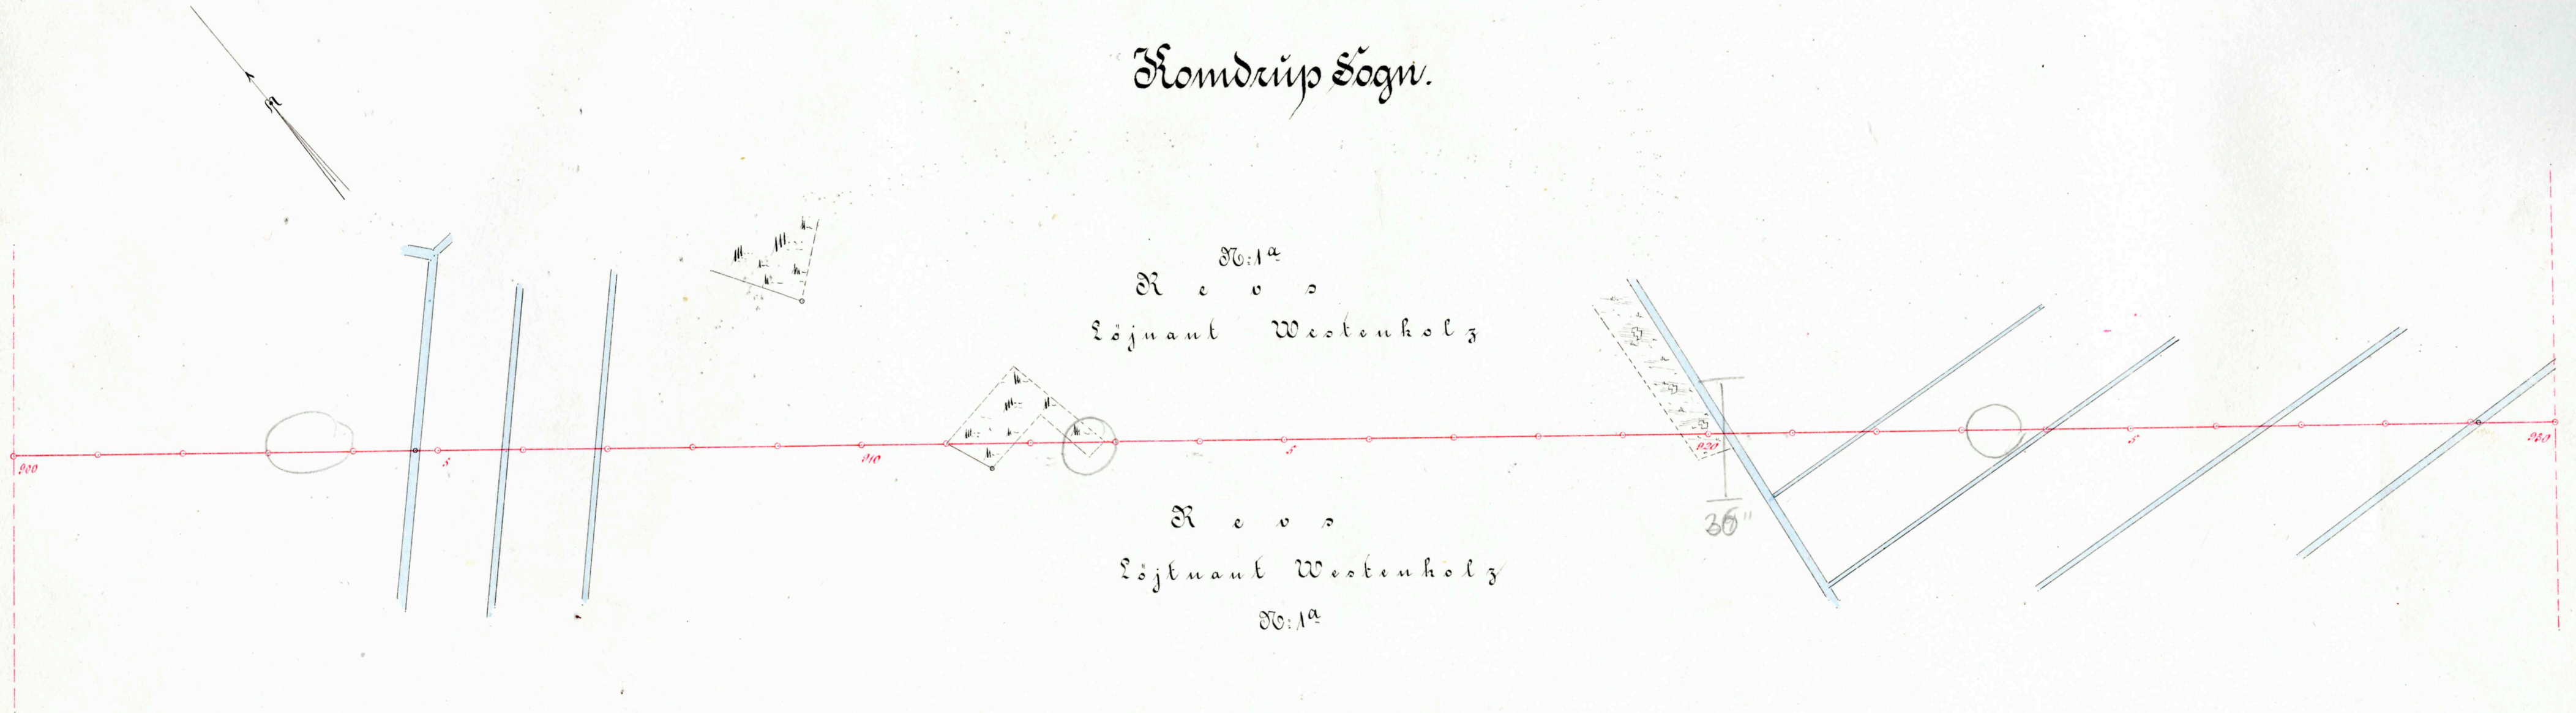 Komdrup Sogn.
N
N: 1a
R e v s
Löjnant Westenholz
900
5
910
5
920
5
930
36"
R e v s
Löjtnant Westenholz
N: 1a